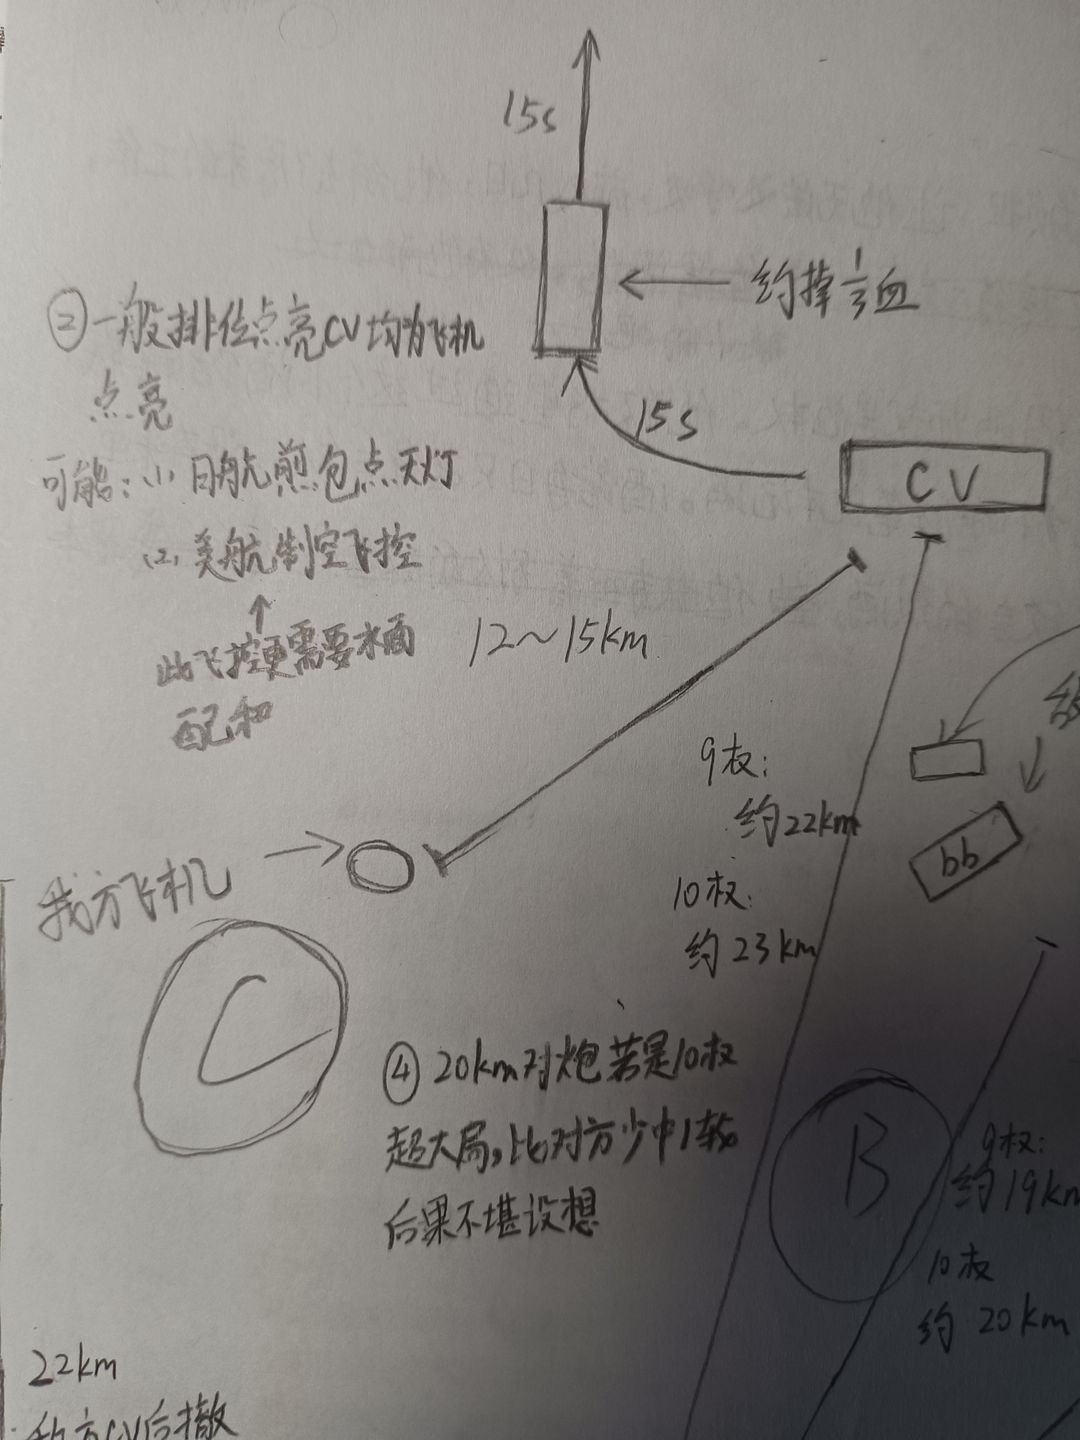 15s
约掉1/3血
②一般排位点亮CV均为飞机
点亮
15s
CV
可能：(1) 日航煎包点天灯
(2) 美航制空飞控
此飞控更需要水面
配和
12～15km
9杈：
约22km
bb
10杈：
约23km
我方飞机
C
④ 20km对炮若是10杈
超大局，比对方少中1轮
后果不堪设想
B
9杈：
约19km
10杈
约20km
22km
敌方CV后撤